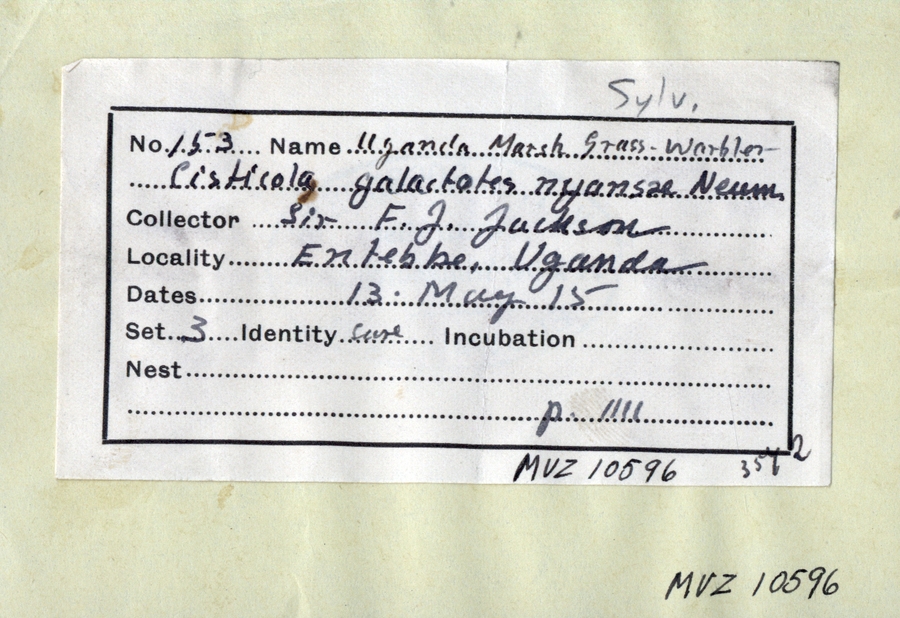 Sylv.
No. 153 Name Uganda Marsh Grass-Warbler
Cisticola galactotes nyansae Neum.
Collector Sir F. J. Jackson
Locality Entebbe, Uganda
Dates 13. May 15
Set 3 Identity sure Incubation
Nest
p. 1111
MVZ 10596
2
MVZ 10596